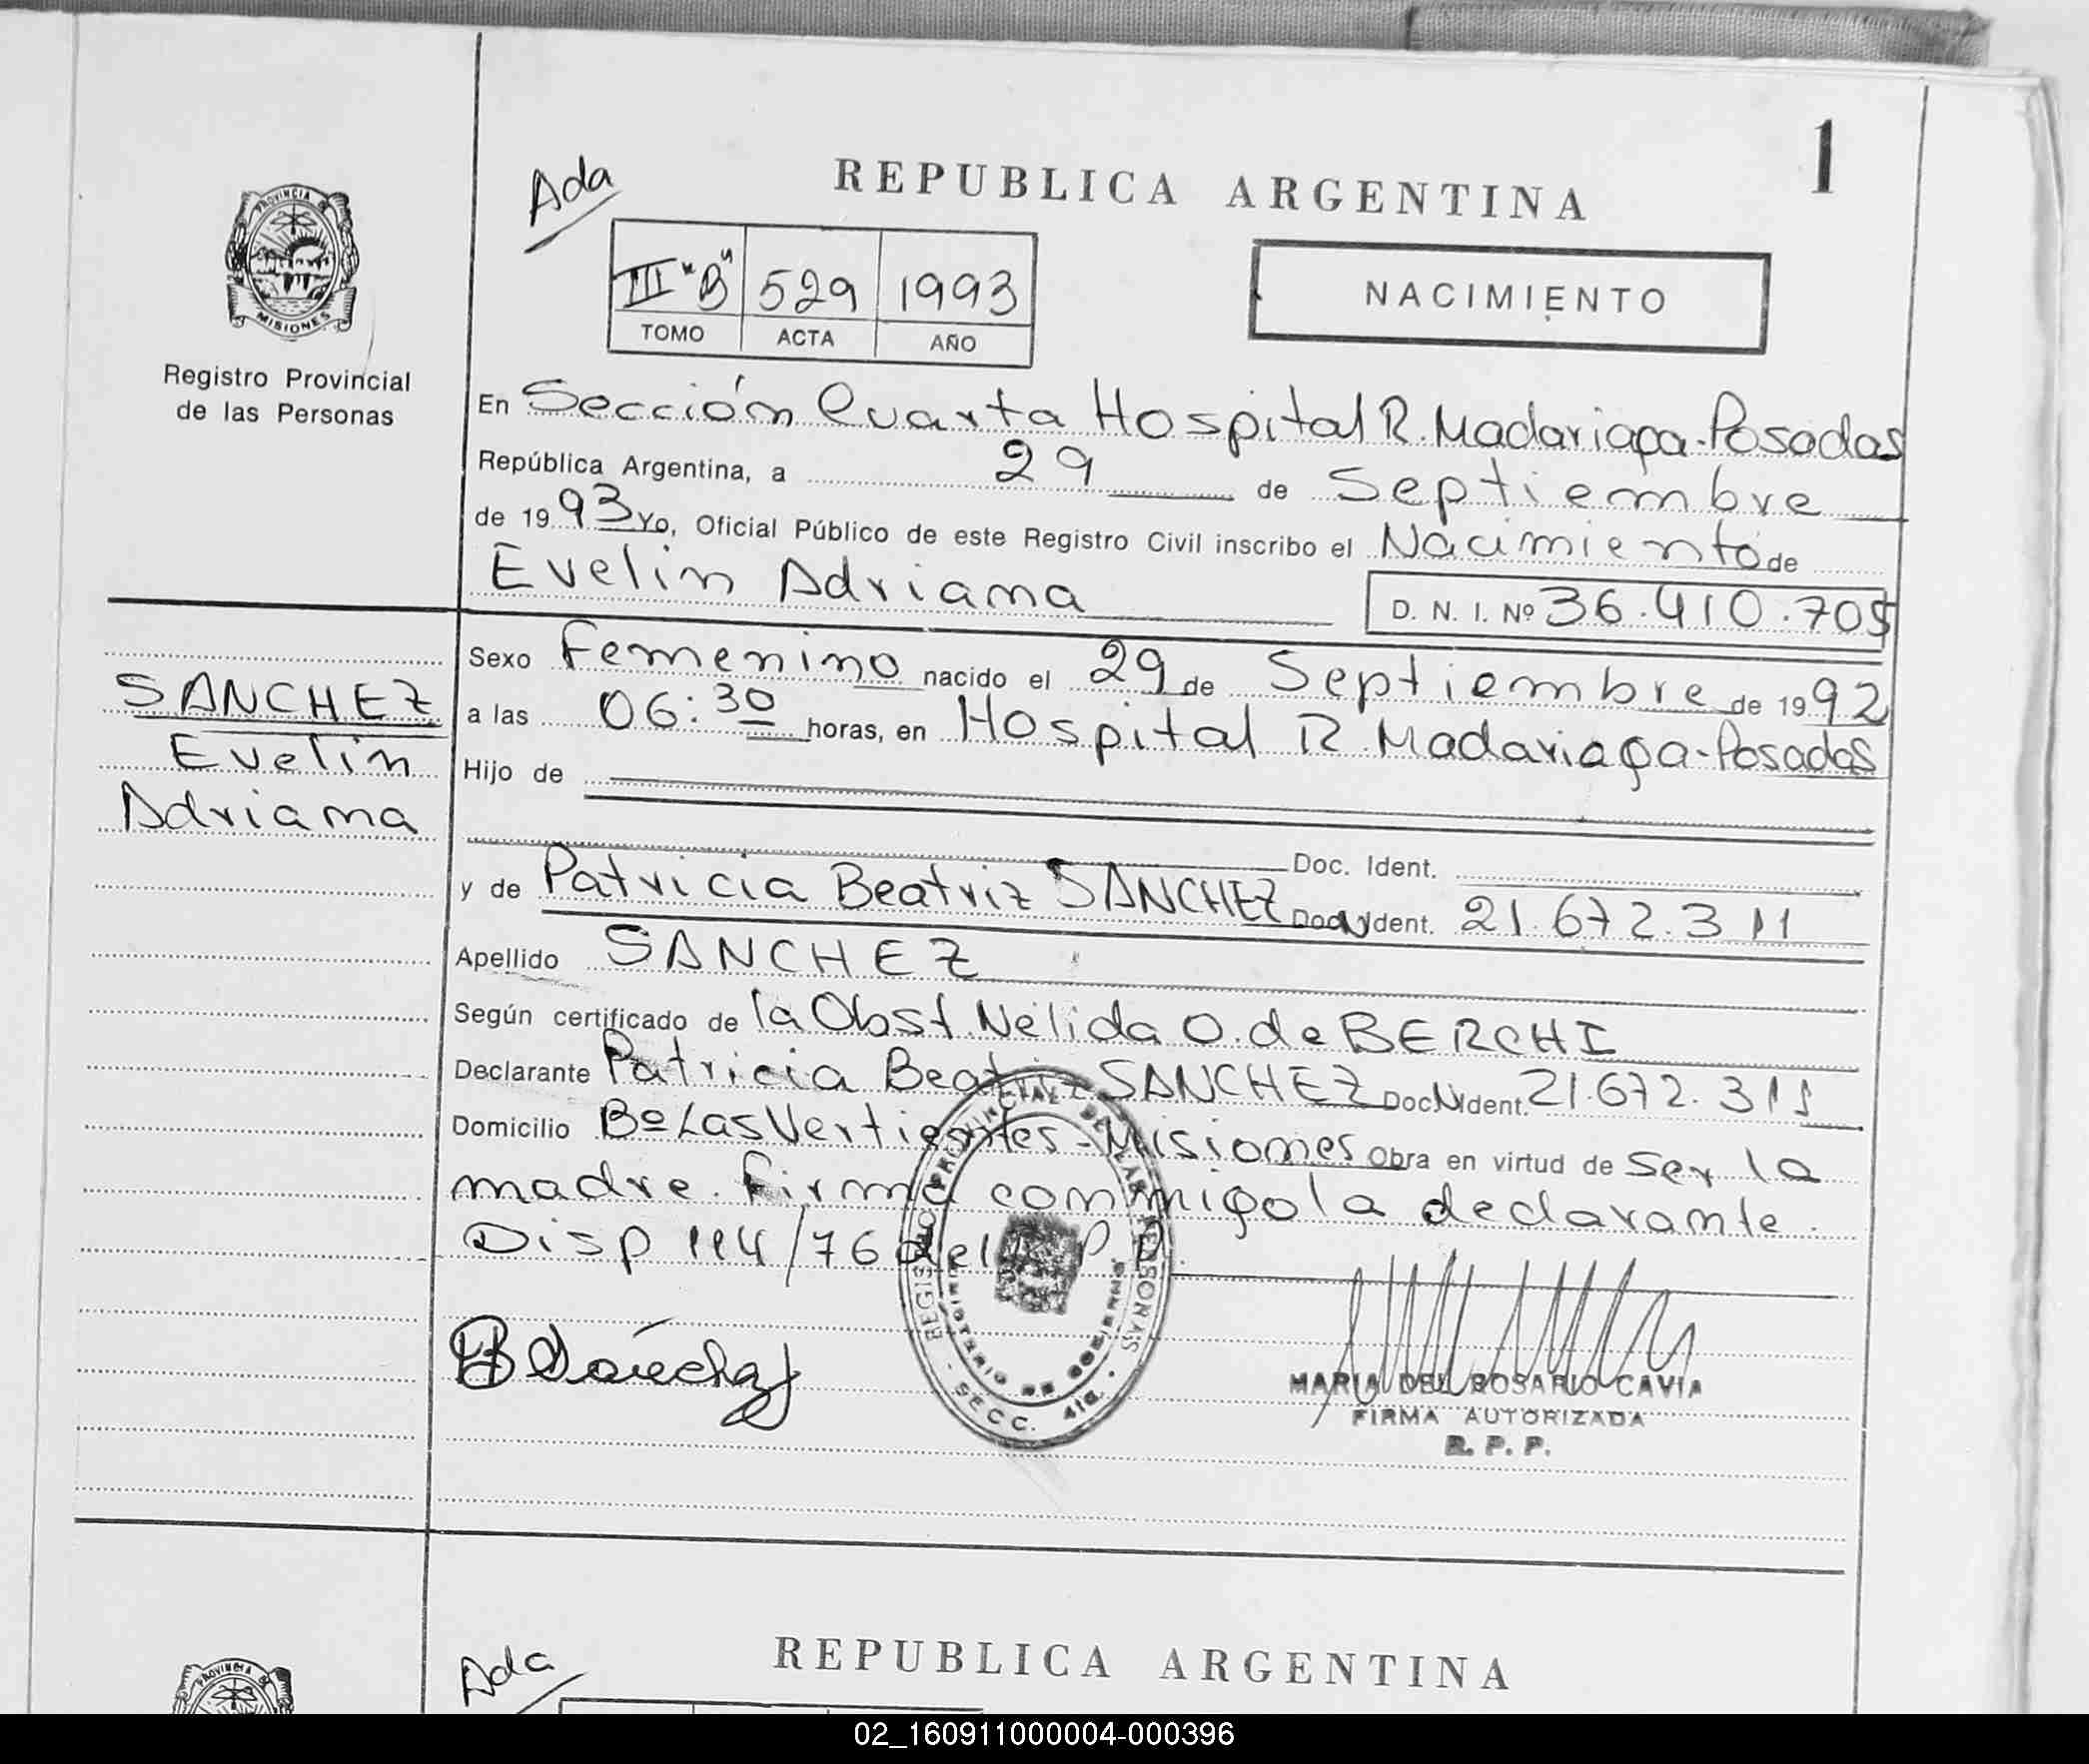 1
Ada
REPUBLICA ARGENTINA
PROVINCIA DE
MISIONES
III "B" 529 1993
TOMO ACTA AÑO
NACIMIENTO
Registro Provincial
de las Personas
En Sección Cuarta Hospital R. Madariaga-Posadas
República Argentina, a 29 de Septiembre
de 1993 Yo, Oficial Público de este Registro Civil inscribo el Nacimiento de
Evelin Adriana D. N. I. Nº 36.410.705
SANCHEZ
Evelin
Adriana
Sexo Femenino nacido el 29 de Septiembre de 1992
a las 06:30 horas, en Hospital R. Madariaga-Posadas
Hijo de
Doc. Ident.
y de Patricia Beatriz SANCHEZ Doc. Ident. 21.672.311
Apellido SANCHEZ
Según certificado de la Obst. Nélida O. de BERCHI
Declarante Patricia Beatriz SANCHEZ Doc. Ident. 21.672.311
Domicilio Bº Las Vertientes-Misiones Obra en virtud de ser la
madre. Firma conmigo la declarante.
Disp 114/76 del R. P. P.
REGISTRO PROVINCIAL DE LAS PERSONAS
MINISTERIO DE GOBIERNO
SECC. 4ta.
B Sánchez
MARIA DEL ROSARIO CAVIA
FIRMA AUTORIZADA
R. P. P.
Ada
REPUBLICA ARGENTINA
PROVINCIA DE
02_160911000004-000396